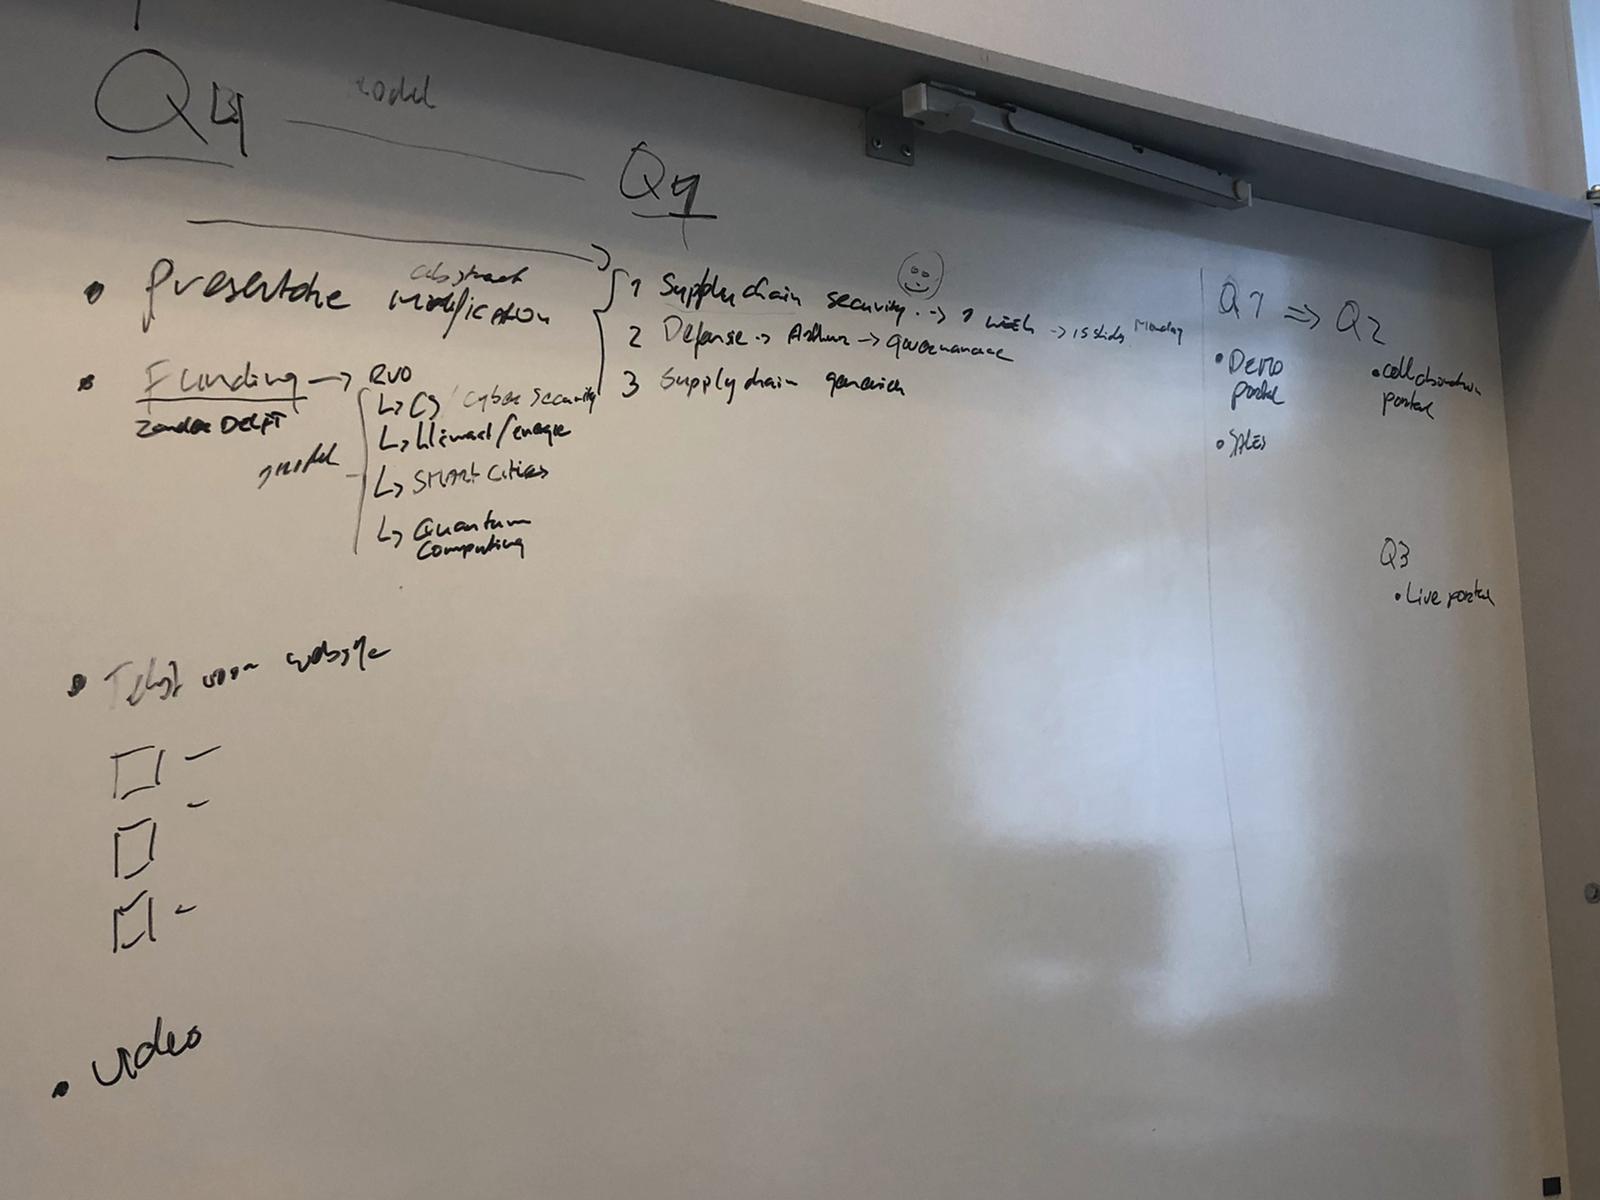 model
Q4
Q4
• Presentatie abstract modification
1 Supply chain security → 1 week → 15 slides Monday
2 Defense → Arthur → governance
3 Supply chain generiek
• Funding → RVO
Zonder DELFT
↳ CS / cyber security
↳ klimaat/energie
model
↳ SMART Cities
↳ Quantum
computing
• Tekst voor website
• video
Q1 ⇒ Q2
• Demo
portal
• Sales
• collaboration
portal
Q3
• Live portal